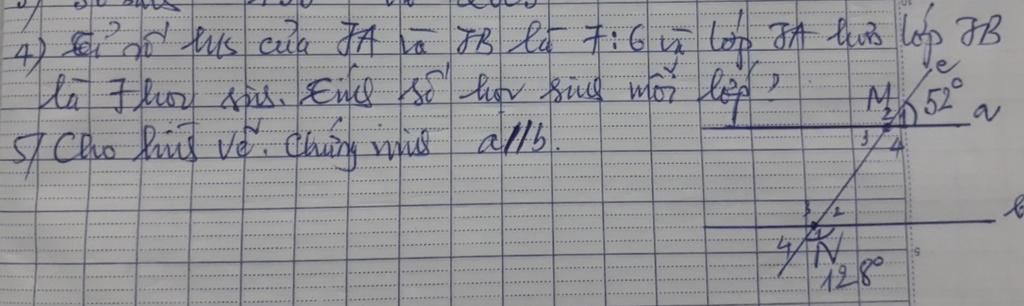 4) Tỉ số hs của 7A và 7B là 7:6 và lớp 7A hơn lớp 7B
là 7 học sinh. Tính số học sinh mỗi lớp?
5) Cho hình vẽ. Chứng minh a//b.
c
M 52° a
2 1
3 4
3 2 b
4 1
N
128°